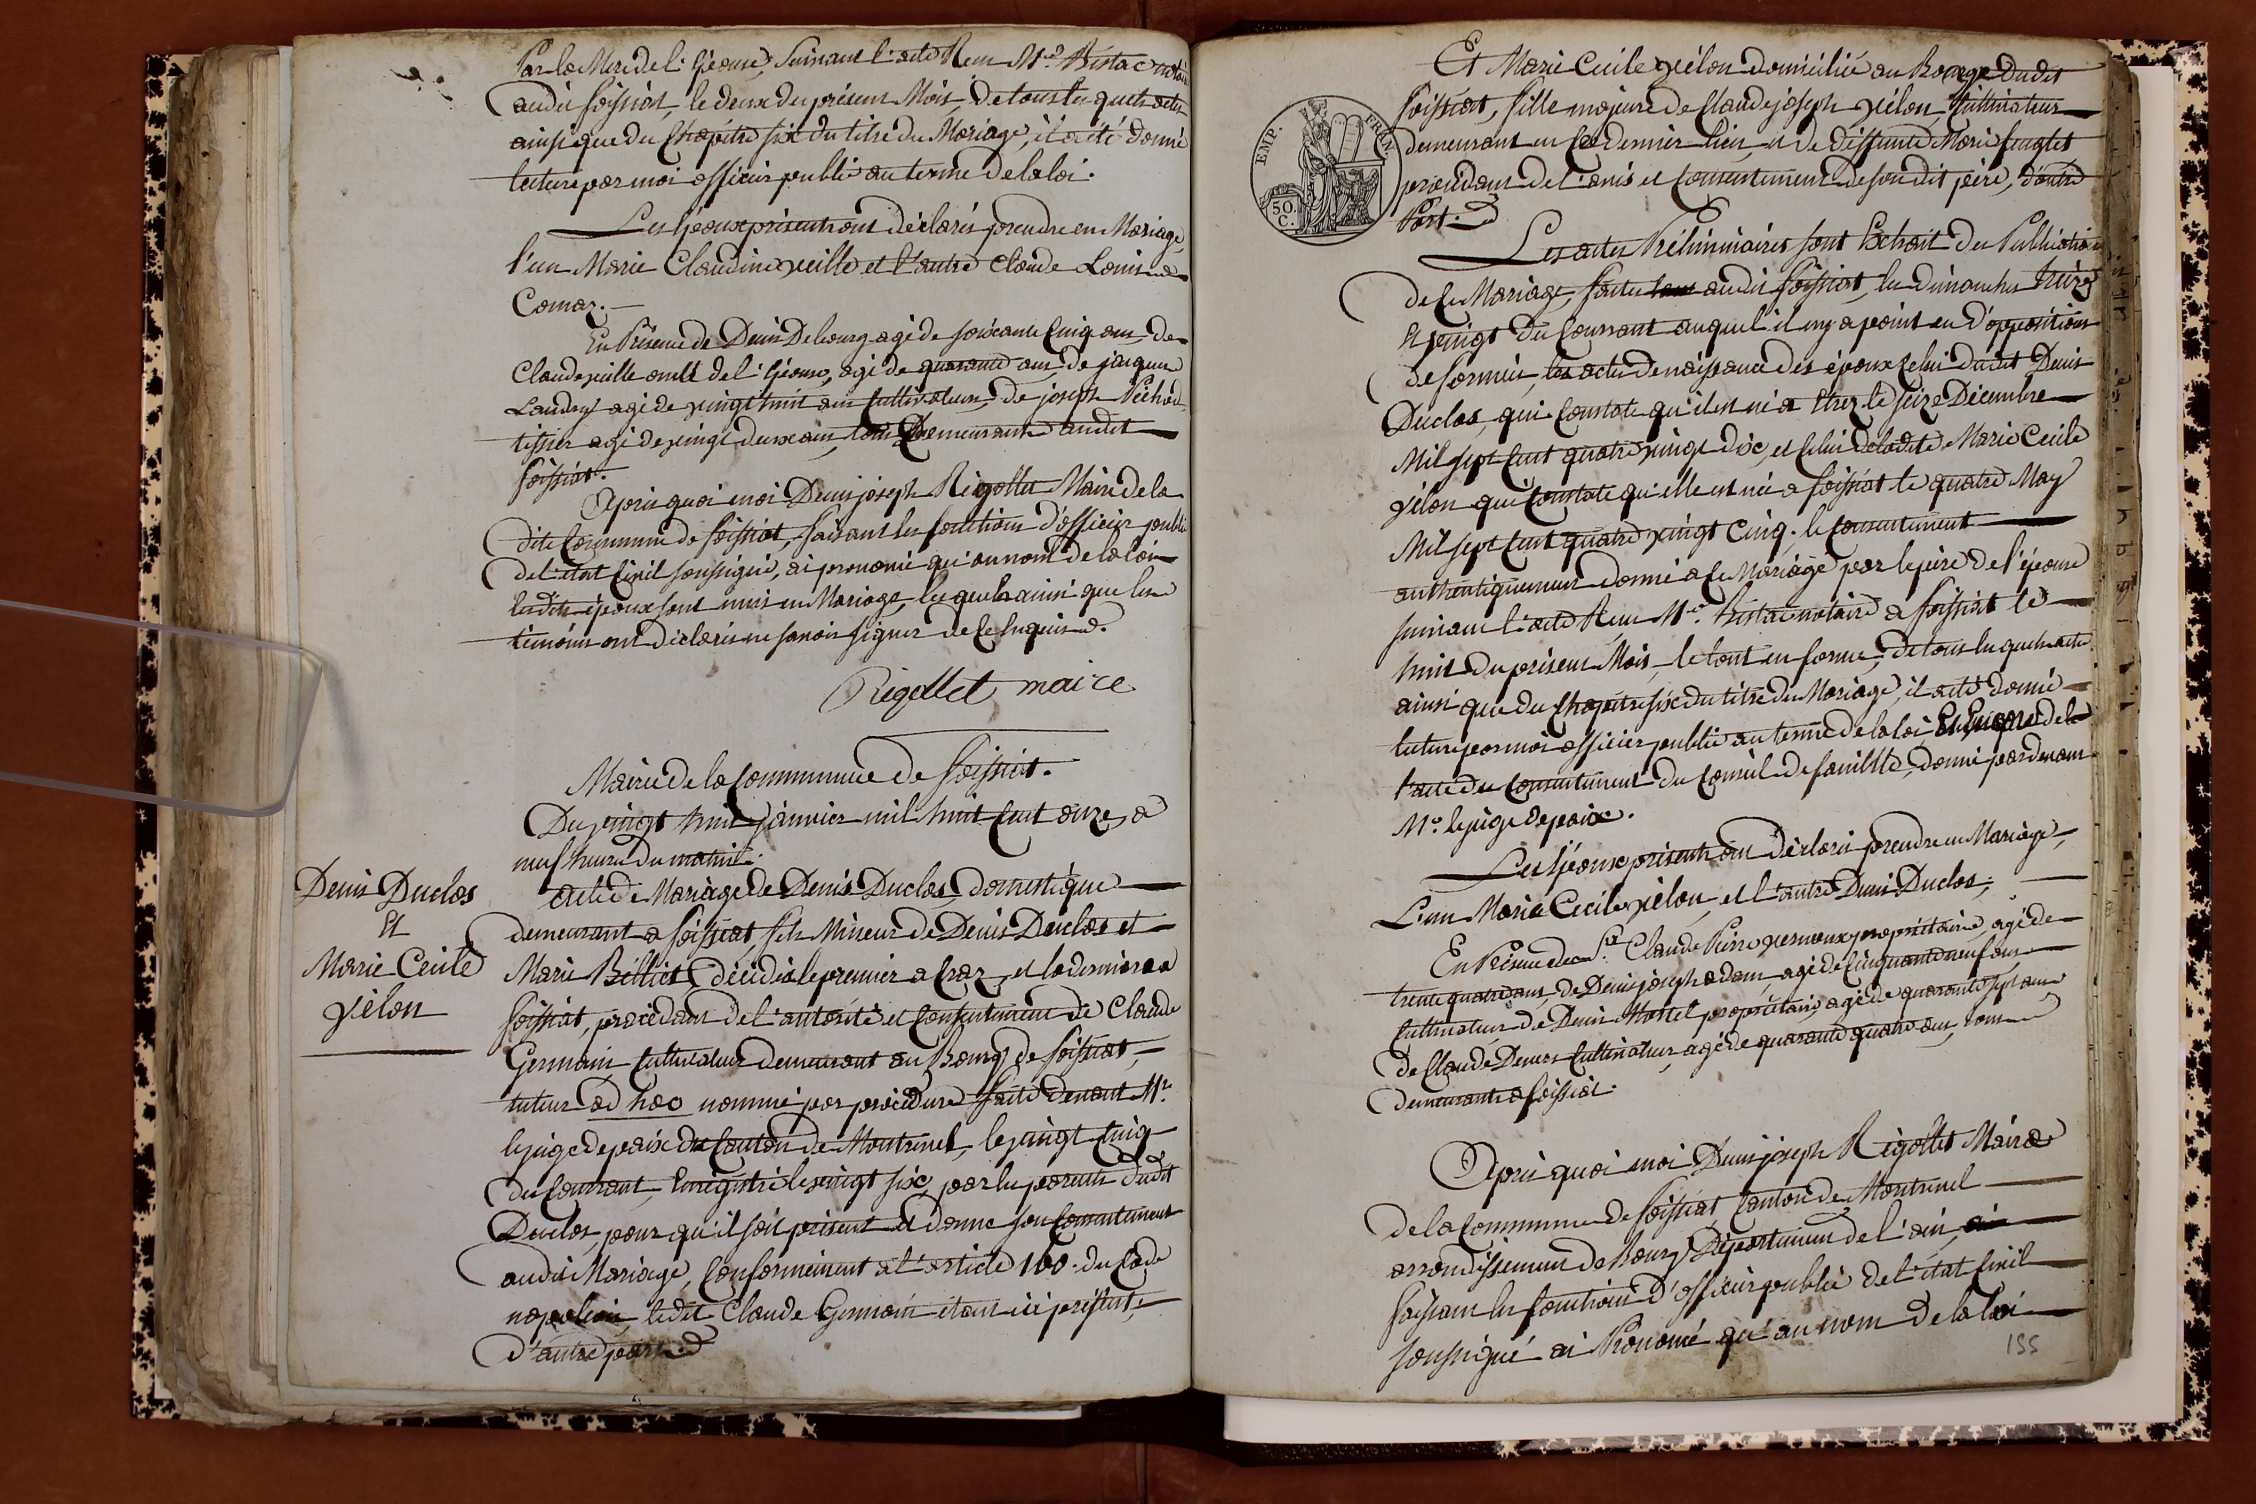 Par la Mere de l'Epouse, suivant l'acte Recu Me Bistac notaire
audit foissiat, le deux du présent Mois, de tous les quels actes
ainsi que du Chapitre six du titre du Mariage, il a été donné
lecture par moi officier public au terme de la loi.
Les Epoux présents ont déclarés prendre en Mariage,
l'un Marie Claudine veille et l'autre Claude Louis
Comaz.
En Présence de Denis Debourg agé de soixante Cinq ans, de
Claude veille oncle de l'Epouse, agé de quarante ans, de jacques
Landry agé de vingt huit ans Cultivateurs, de joseph Pichod
tissier agé de vingt deux ans, tous Demeurants audit
foissiat.
Après quoi moi Denis joseph Rigollet Maire de la
dite Commune de foissiat, faisant les fonctions d'officier public
de l'état Civil soussigné, ai prononcé qu'au nom de la loi
lesdits époux sont unis en Mariage, les quels ainsi que les
témoins ont déclarés ne savoir signer de ce Enquis.
Rigollet maire
Mairie de la Commune de foissiat.
Du vingt huit janvier mil huit Cent onze, a
neuf heures du matin.
Denis Duclos
Et
Marie Cecile
vélon
acte de Mariage de Denis Duclos, domestique
demeurant a foissiat, fils Mineur de Denis Duclos et
Marie Billiet, décédés le premier a Craz, et la derniere a
foissiat, procédant de l'autorité et Consentement de Claude
Germain Cultivateur demeurant au Bourg de foissiat,
tuteur ad hoc nommé par procédure faite devant Mr.
le juge de paix du Canton de Montrevel, le vingt Cinq
du Courrant, Enregistré le vingt six, par les parents dudit
Duclos, pour qu'il soit présent et donne son Consentement
audit Mariage, Conformément à l'article 160. du Code
napoleon, ledit Claude Germain étant ici présent,
d'autre part.
EMP. FRAN.
50.
C.
Et Marie Cecile vélon Domiciliée au Bourg dudit
foissiat, fille majeure de Claude joseph vélon, Cultivateur
demeurant en Ce dernier lieu, et de deffunte Marie
procédant de l'avis et Consentement de son dit père, d'autre
Part.
Les actes Préliminaires sont Extrait des Publications
de Ce Mariage, faites audit foissiat, les dimanches treize
Et vingt du Courrant auquel il ny a point eu d'oppositions
de formées, les actes de naissance des époux Celui dudit Denis
Duclos, qui Constate qu'il est né a Etrez le seize Décembre
Mil sept Cent quatre vingt dix, et Celui de ladite Marie Cecile
vélon qui Constate qu'elle est née a foissiat le quatre May
Mil sept Cent quatre vingt Cinq. le Consentement
authentiquement donné a Ce Mariage par le père de l'épouse
suivant l'acte Recu Me. Bistac notaire a foissiat le
huit du présent Mois, le tout en forme, de tous les quels actes
ainsi que du Chapitre six du titre du Mariage, il a été donné
lecture par moi officier public au terme de la loi de
l'acte du Consentement du Conseil de famille, donné pardevant
Mr. le juge de paix.
Les Epoux présents ont déclarés prendre en Mariage,
L'un Marie Cecile vélon, et l'autre Denis Duclos,
En Présence de Sr. Claude Pierre vernoux propriétaire, agé de
trente quatre ans, de Denis joseph adam, agé de Cinquante neuf ans
Cultivateur, de Denis Morel propriétaire, agé de quarante sept ans
de Claude Devers Cultivateur, agé de quarante quatre ans, tous
demeurants a foissiat.
Après quoi moi Denis joseph Rigollet Maire
de la Commune de foissiat, Canton de Montrevel
arrondissement de Bourg Département de l'ain,
faisant les fonctions d'officier public de l'état Civil
soussigné ai Prononcé qu'au nom de la loi
155